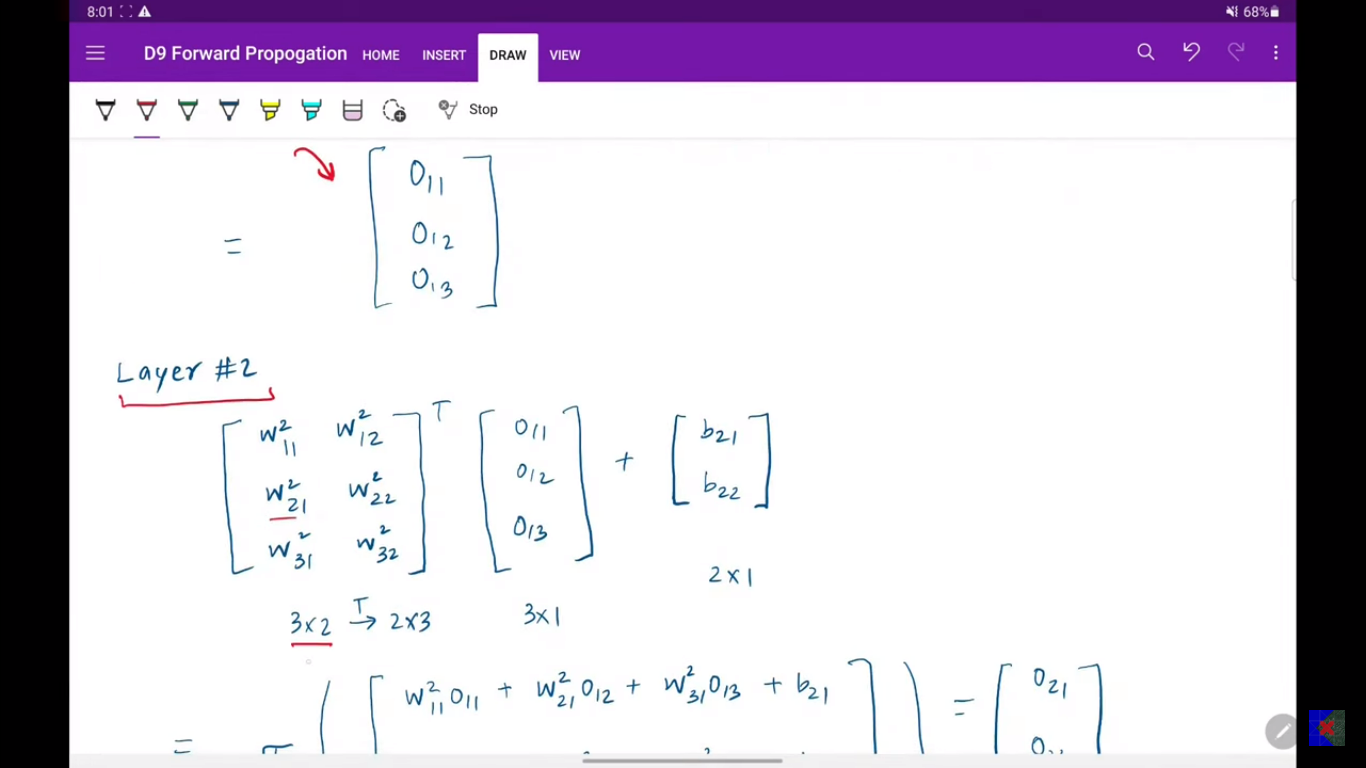 8:01 68%
D9 Forward Propogation HOME INSERT DRAW VIEW
Stop
= [ O₁₁
O₁₂
O₁₃ ]
Layer #2
[ w²₁₁ w²₁₂ ]ᵀ [ O₁₁ ] + [ b₂₁ ]
[ w²₂₁ w²₂₂ ] [ O₁₂ ] [ b₂₂ ]
[ w²₃₁ w²₃₂ ] [ O₁₃ ]
2×1
3×2 T→ 2×3 3×1
( [ w²₁₁O₁₁ + w²₂₁O₁₂ + w²₃₁O₁₃ + b₂₁ ] ) = [ O₂₁ ]
=